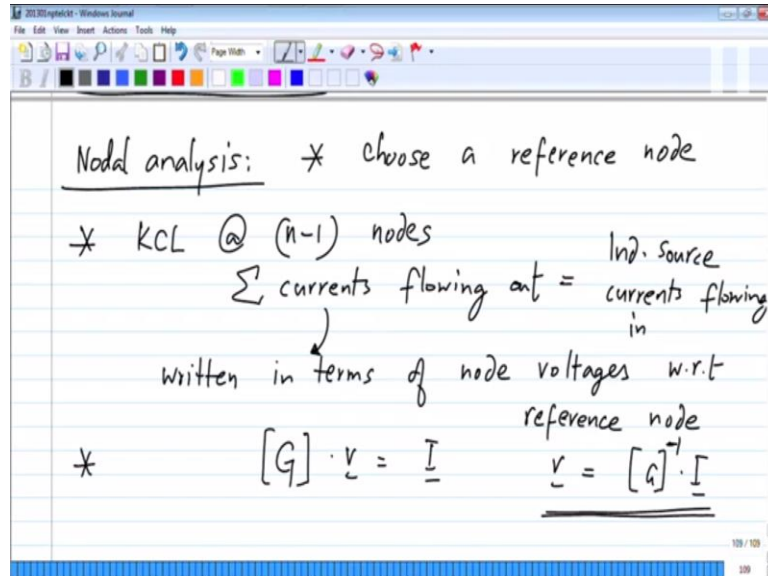 201301nptelckt - Windows Journal
File Edit View Insert Actions Tools Help
Page Width
B I
Nodal analysis: * choose a reference node
* KCL @ (n-1) nodes
∑ currents flowing out = Ind. source currents flowing in
written in terms of node voltages w.r.t reference node
* [G] · v = I v = [G]⁻¹ · I
109 / 109
109